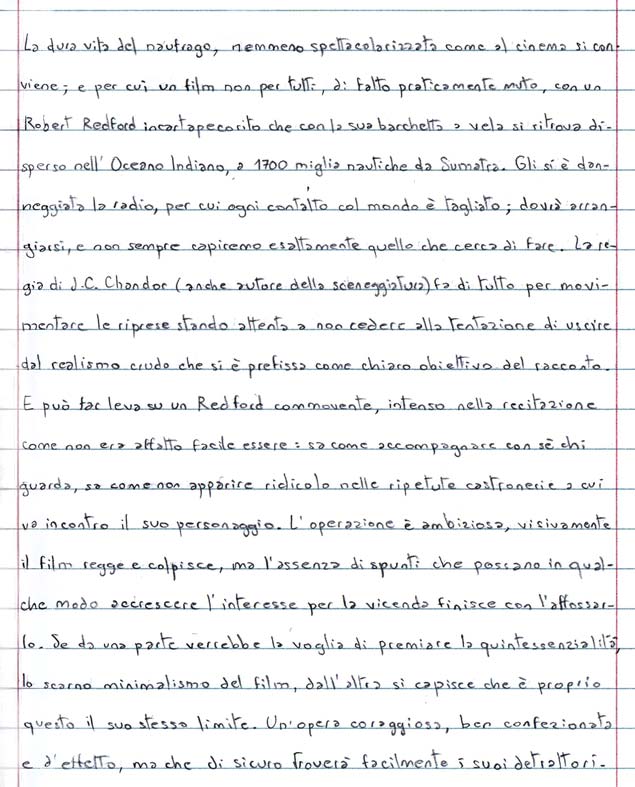 La dura vita del naufrago, nemmeno spettacolarizzata come al cinema si con-
viene; e per cui un film non per tutti, di fatto praticamente muto, con un
Robert Redford incartapecorito che con la sua barchetta a vela si ritrova di-
sperso nell'Oceano Indiano, a 1700 miglia nautiche da Sumatra. Gli si è dan-
neggiata la radio, per cui ogni contatto col mondo è tagliato; dovrà arran-
giarsi, e non sempre capiremo esattamente quello che cerca di fare. La re-
gia di J.C. Chandor (anche autore della sceneggiatura) fa di tutto per movi-
mentare le riprese stando attenta a non cedere alla tentazione di uscire
dal realismo crudo che si è prefissa come chiaro obiettivo del racconto.
E può far leva su un Redford commovente, intenso nella recitazione
come non era affatto facile essere: sa come accompagnare con sè chi
guarda, sa come non apparire ridicolo nelle ripetute castronerie a cui
va incontro il suo personaggio. L'operazione è ambiziosa, visivamente
il film regge e colpisce, ma l'assenza di spunti che possano in qual-
che modo accrescere l'interesse per la vicenda finisce con l'affossar-
lo. Se da una parte verrebbe la voglia di premiare la quintessenzialità,
lo scarno minimalismo del film, dall'altra si capisce che è proprio
questo il suo stesso limite. Un'opera coraggiosa, ben confezionata
e d'effetto, ma che di sicuro troverà facilmente i suoi detrattori.